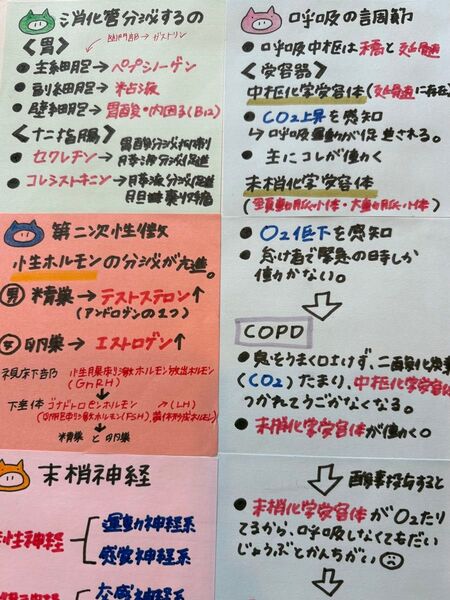 消化管分泌するの
〈胃〉
幽門部→ガストリン
● 主細胞→ペプシノーゲン
● 副細胞→粘液
● 壁細胞→胃酸・内因子(B12)
〈十二指腸〉
胃酸分泌抑制
● セクレチン→膵液分泌促進
● コレシストキニン→膵液分泌促進
胆嚢収縮
第二次性徴
性ホルモンの分泌が亢進。
男 精巣→テストステロン↑
(アンドロゲンの1つ)
女 卵巣→エストロゲン↑
視床下部 性腺刺激ホルモン放出ホルモン
(GnRH)
下垂体 ゴナドトロピンホルモン (LH)
(卵胞刺激ホルモン(FSH)、黄体形成ホルモン)
精巣と卵巣
末梢神経
性神経
運動神経系
感覚神経系
交感神経系
呼吸の調節
● 呼吸中枢は橋と延髄
〈受容器〉
中枢化学受容体(延髄に存在)
● CO2上昇を感知
↳呼吸運動が促進される。
● 主にコレが働く
末梢化学受容体
(頸動脈小体・大動脈小体)
● O2低下を感知
● 怠け者で緊急の時しか
働かない。
COPD
● 息をうまくはけず、二酸化炭素
(CO2)たまり、中枢化学受容体
つかれてうごかなくなる。
● 末梢化学受容体が働く。
酸素投与すると
● 末梢化学受容体がO2たり
てるから、呼吸しなくてもだい
じょうぶとかんちがい